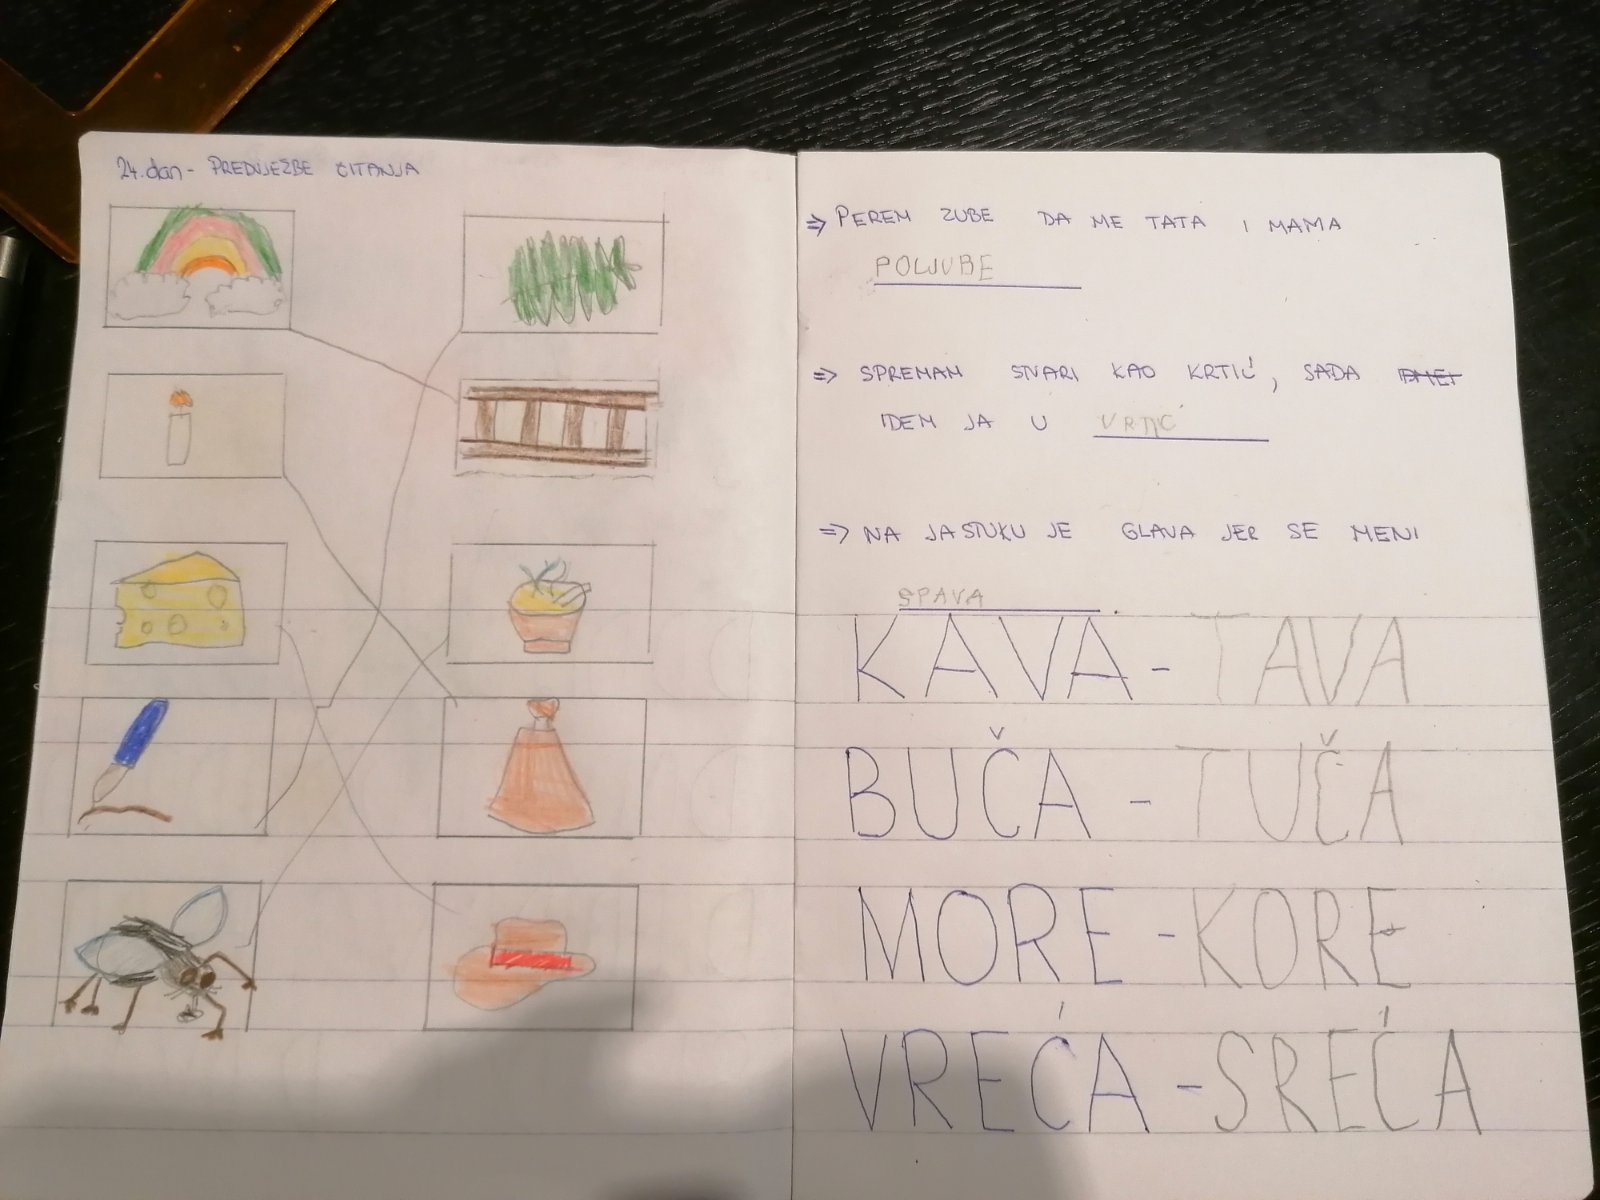 24. dan - PREDVJEŽBE ČITANJA
⇒ PEREM ZUBE DA ME TATA I MAMA
POLJUBE
⇒ SPREMAM STVARI KAO KRTIĆ, SADA
IDEM JA U VRTIĆ
⇒ NA JASTUKU JE GLAVA JER SE MENI
SPAVA.
KAVA - TAVA
BUČA - TUČA
MORE - KORE
VREĆA - SREĆA